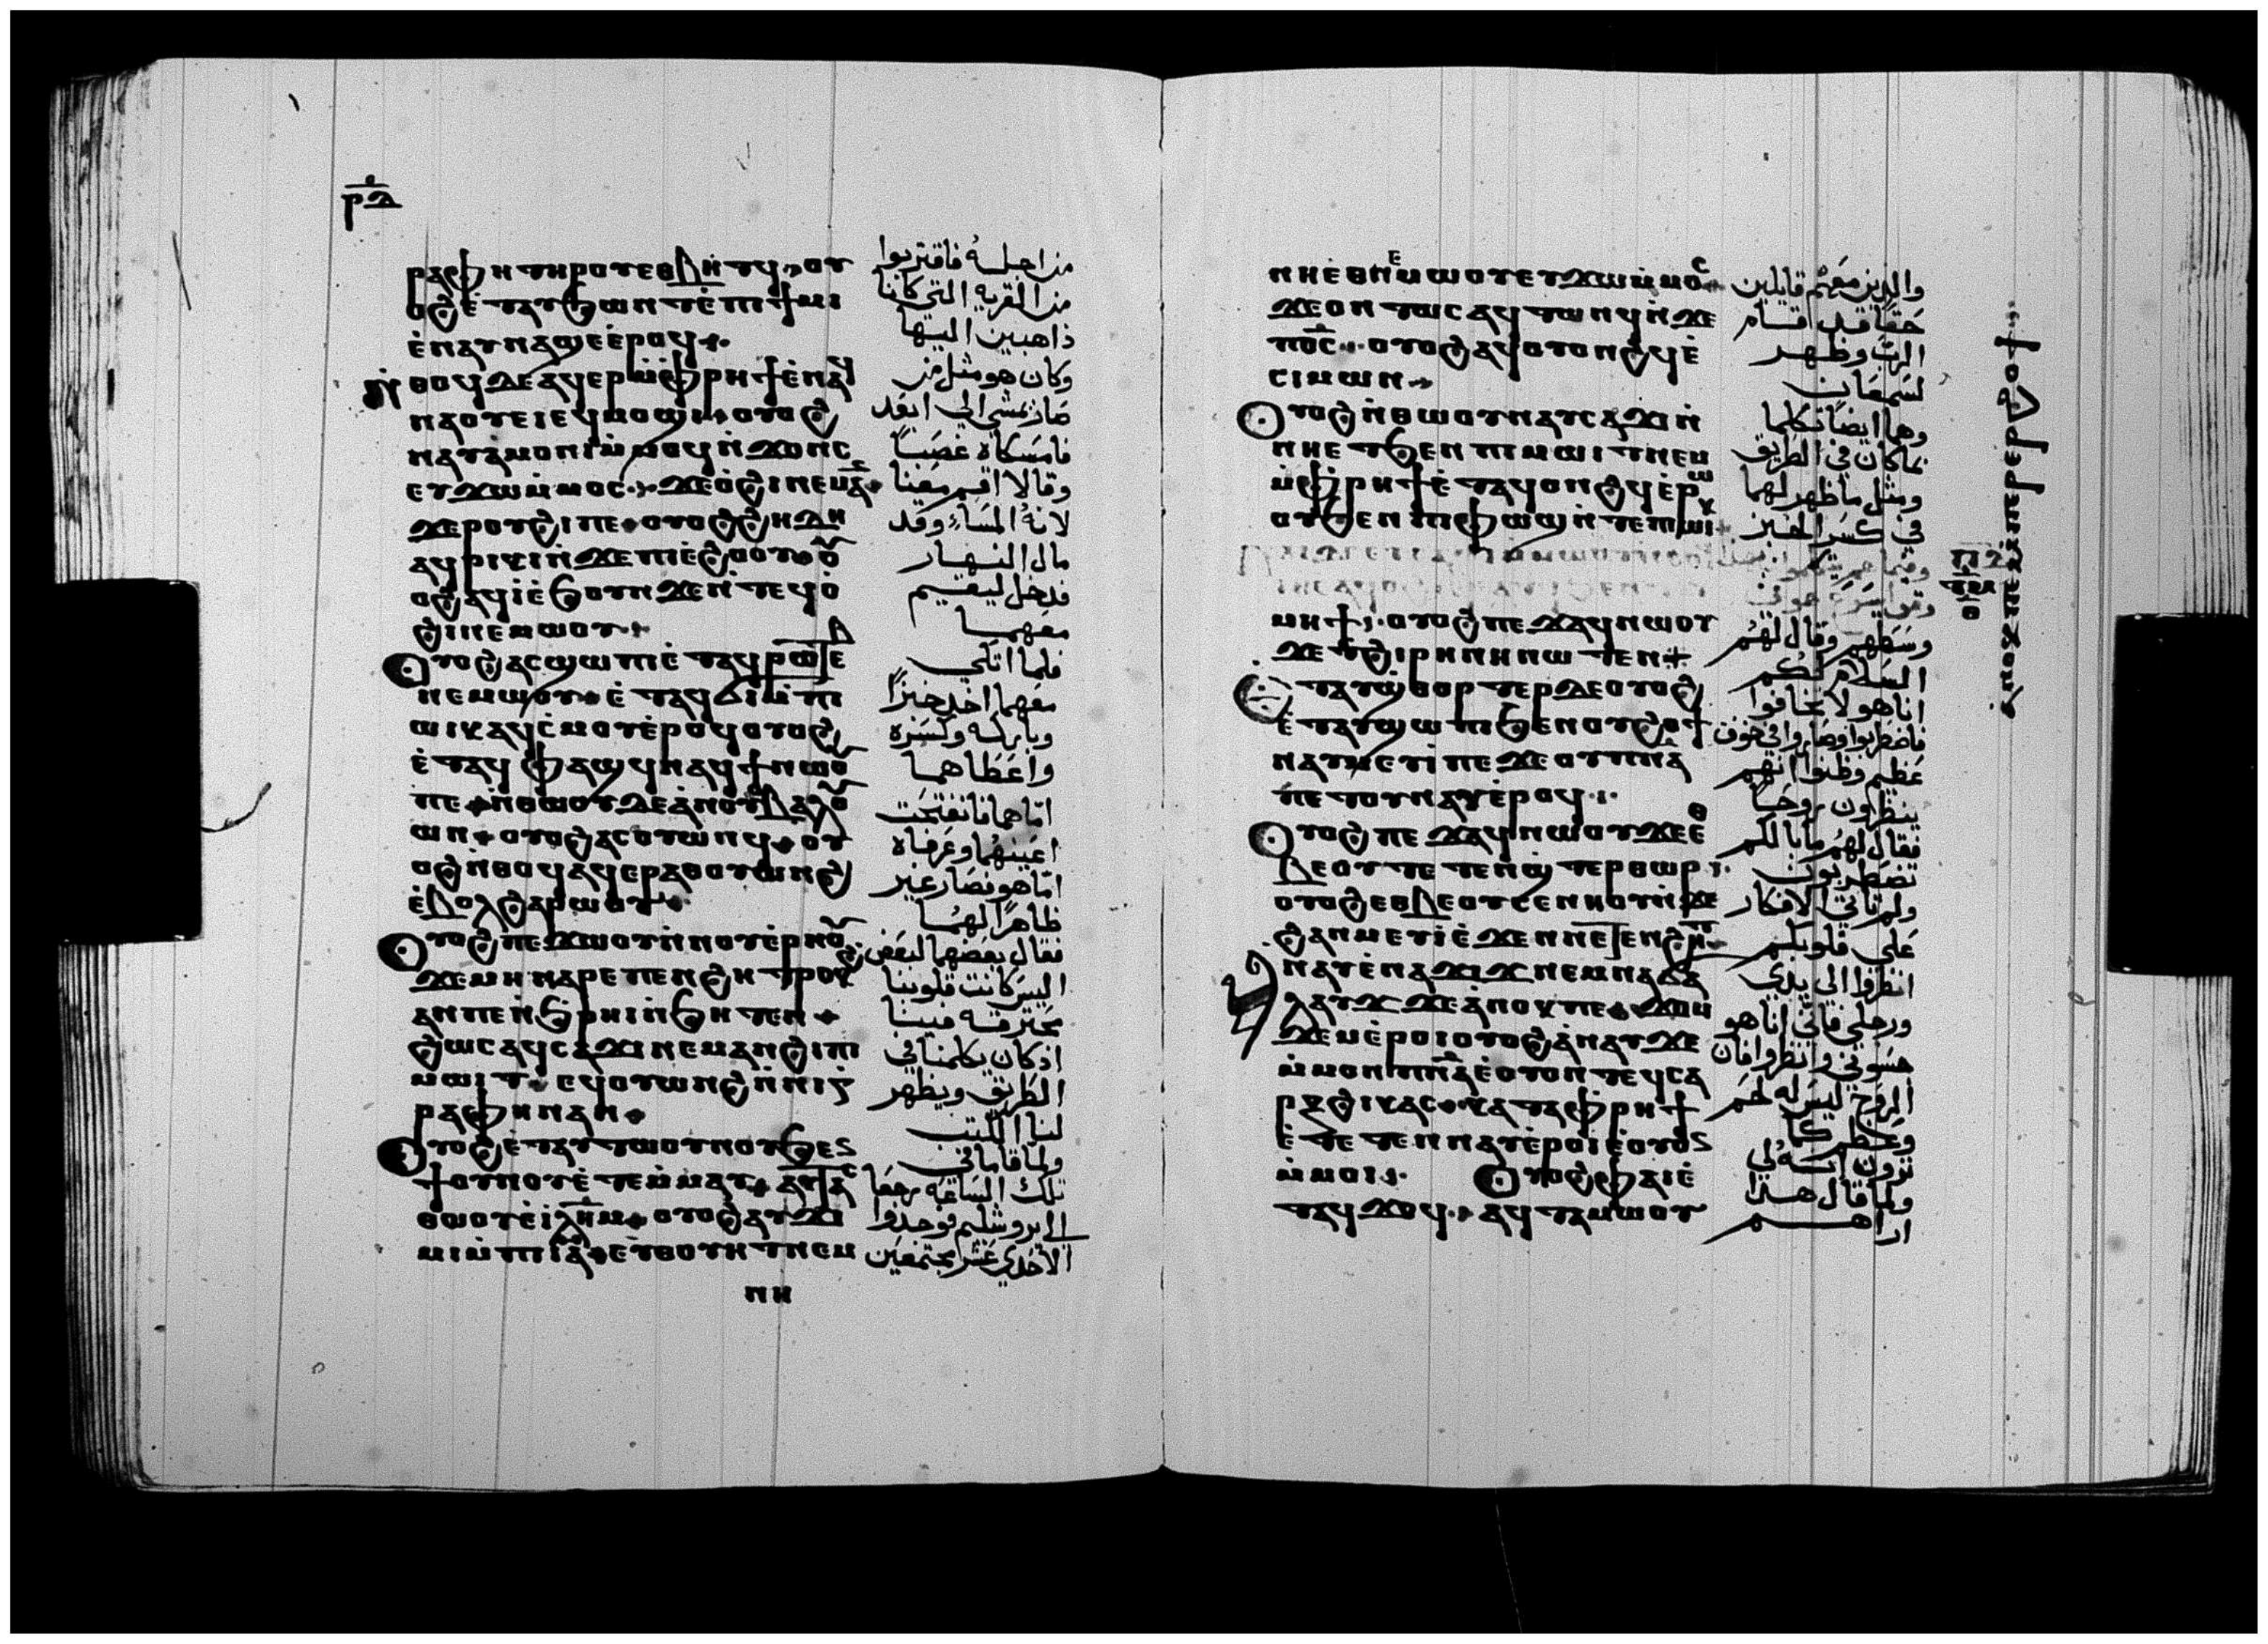 ⲣ̅ⲇ̅
ⲣⲁⲫⲏ ⲧⲏⲣⲟⲩ ⲉⲑⲃⲏⲧϥ ⲟⲩ
ⲟϩ ⲉ̀ⲧⲁⲩϧⲱⲛⲧ ⲉ̀ⲡⲓϯⲙⲓ
ⲉ̀ⲛⲁⲩⲛⲁϣⲉ ⲉ̀ⲣⲟϥ
ⲛ̀ⲑⲟϥ ⲇⲉ ⲁϥⲉⲣⲙ̀ⲫⲣⲏϯ ⲉ̀ⲛⲁϥ
ⲛⲁⲟⲩⲉⲓ ⲉϥⲙⲟϣⲓ ⲟⲩⲟϩ
ⲛⲁⲩⲁⲙⲟⲛⲓ ⲙ̀ⲙⲟϥ ⲛ̀ϫⲟⲛⲥ
ⲉⲩϫⲱ ⲙ̀ⲙⲟⲥ ϫⲉ ⲟ̀ϩⲓ ⲛⲉⲙⲁⲛ
ϫⲉ ⲣⲟⲩϩⲓ ⲡⲉ ⲟⲩⲟϩ ϩⲏⲇⲏ
ⲁϥⲣⲓⲕⲓ ⲛ̀ϫⲉ ⲡⲓⲉ̀ϩⲟⲟⲩ ⲟⲩ
ⲟϩ ⲁϥⲓ̀ ⲉ̀ϧⲟⲩⲛ ϫⲉ ⲛ̀ⲧⲉϥⲟ̀
ϩⲓ ⲛⲉⲙⲱⲟⲩ
ⲟⲩⲟϩ ⲁⲥϣⲱⲡⲓ ⲉ̀ⲧⲁϥⲣⲱⲧⲉⲃ
ⲛⲉⲙⲱⲟⲩ ⲉ̀ⲧⲁϥϭⲓ ⲙ̀ⲡⲓ
ⲱⲓⲕ ⲁϥⲥ̀ⲙⲟⲩ ⲉ̀ⲣⲟϥ ⲟⲩⲟϩ
ⲉ̀ⲧⲁϥⲫⲁϣϥ ⲛⲁϥϯ ⲛⲱⲟⲩ
ⲡⲉ ⲛ̀ⲑⲱⲟⲩ ⲇⲉ ⲁ̀ⲛⲟⲩⲃⲁⲗ ⲟⲩ
ⲱⲛ ⲟⲩⲟϩ ⲁⲥⲟⲩⲱⲛϥ ⲟⲩ
ⲟϩ ⲛ̀ⲑⲟϥ ⲁϥⲉⲣⲁⲑⲟⲩⲱⲛϩ
ⲉ̀ⲃⲟⲗ ϩⲁⲣⲱⲟⲩ
ⲟⲩⲟϩ ⲡⲉϫⲱⲟⲩ ⲛ̀ⲛⲟⲩⲉ̀ⲣⲏⲟⲩ
ϫⲉ ⲙⲏ ⲛⲁⲣⲉ ⲡⲉⲛϩⲏⲧ ⲣⲟⲕϩ
ⲁⲛ ⲡⲉ ⲛ̀ϧⲣⲏⲓ ⲛ̀ϧⲏⲧⲉⲛ
ϩⲱⲥ ⲁϥⲥⲁϫⲓ ⲛⲉⲙⲁⲛ ϩⲓ ⲡⲓ
ⲙⲱⲓⲧ ⲉϥⲟⲩⲱⲛϩ ⲛ̀ⲛⲓⲅ
ⲣⲁⲫⲏ ⲛⲁⲛ
ⲟⲩⲟϩ ⲉ̀ⲧⲁⲩⲧⲱⲟⲩⲛⲟⲩ ϧⲉⲛ
ϯⲟⲩⲛⲟⲩ ⲉ̀ⲧⲉⲙ̀ⲙⲁⲩ ⲁⲩⲧⲁⲥ
ⲑⲱⲟⲩ ⲉ̀ⲓⲗⲏⲙ ⲟⲩⲟϩ ⲁⲩϫⲓ
ⲙⲓ ⲙ̀ⲡⲓⲓ̅ⲁ̅ ⲉⲩⲑⲟⲩⲏⲧ ⲛⲉⲙ
ⲛⲏ
من اجله فاقتربوا
من القريه التي كانا
ذاهبين اليها
وكان هو مثل من
صار يمشي الي ابعد
فامسكاه غصبًا
وقالا اقم معنا
لانه المساء وقد
مال النهار
فدخل ليقيم
معهما
فلما اتكي
معهما اخد خبزًا
وباركه وكسره
واعطاهما
امّاهما فانفتحت
اعينهما وعرفاه
امّاهو فصار غير
ظاهرًا لهما
فقال بعضهما لبعض
اليس كانت قلوبنا
محترقه فينا
اذ كان يكلمنا في
الطريق ويظهر
لنا الكتب
ولما قاما في
تلك الساعه رجعا
الي يروشليم فوجدوا
الاحدي عشر مجتمعين
ⲛⲏⲉⲑⲛⲉⲙⲱⲟⲩ ⲉⲩϫⲱ ⲙ̀ⲙⲟⲥ
ϫⲉ ⲟⲛⲧⲱⲥ ⲁϥⲧⲱⲛϥ ⲛ̀ϫⲉ
ⲡⲟ̅ⲥ̅ ⲟⲩⲟϩ ⲁϥⲟⲩⲟⲛϩϥ ⲉ̀
ⲥⲓⲙⲱⲛ
ⲟⲩⲟϩ ⲛ̀ⲑⲱⲟⲩ ⲛⲁⲩⲥⲁϫⲓ ⲛ̀
ⲛⲏ ⲉⲧϧⲉⲛ ⲡⲓⲙⲱⲓⲧ ⲛⲉⲙ
ⲙ̀ⲫⲣⲏϯ ⲉ̀ⲧⲁϥⲟⲛϩϥ ⲉ̀ⲣⲱ
ⲟⲩ ϧⲉⲛ ⲡⲓⲫⲱϣ ⲛ̀ⲧⲉ ⲡⲓⲱⲓⲕ
ⲙⲏϯ ⲟⲩⲟϩ ⲡⲉϫⲁϥ ⲛⲱⲟⲩ
ϫⲉ ⲧ̀ϩⲓⲣⲏⲛⲏ ⲛⲱⲧⲉⲛ
ⲉ̀ⲧⲁⲩϣ̀ⲑⲟⲣⲧⲉⲣ ⲇⲉ ⲟⲩⲟϩ
ⲉ̀ⲧⲁⲩϣⲱⲡⲓ ϧⲉⲛ ⲟⲩϩⲟϯ
ⲛⲁⲩⲙⲉⲩⲓ̀ ⲡⲉ ϫⲉ ⲟⲩⲡ̅ⲛ̅ⲁ̅
ⲡⲉⲧⲟⲩⲛⲁⲩ ⲉ̀ⲣⲟϥ
ⲟⲩⲟϩ ⲡⲉϫⲁϥ ⲛⲱⲟⲩ ϫⲉ ⲉⲑ
ⲃⲉⲟⲩ ⲧⲉⲧⲉⲛϣ̀ⲧⲉⲣⲑⲱⲣ
ⲟⲩⲟϩ ⲉⲑⲃⲉⲟⲩ ⲥⲉⲛⲏⲟⲩ ⲛ̀ϫⲉ
ϩⲁⲛⲙⲉⲩⲓ ⲉ̀ϫⲉⲛ ⲡⲉⲧⲉⲛϩⲏⲧ
ⲁⲛⲁⲩ ⲉ̀ⲛⲁϫⲓϫ ⲛⲉⲙ ⲛⲁϭⲁ
ⲗⲁⲩϫ ϫⲉ ⲁ̀ⲛⲟⲕ ⲡⲉ ϫⲟⲙ
ϫⲉⲙ ⲉ̀ⲣⲟⲓ ⲟⲩⲟϩ ⲁ̀ⲛⲁⲩ ϫⲉ
ⲙ̀ⲙⲟⲛ ⲡ̅ⲛ̅ⲁ̅ ⲉ̀ⲟⲩⲟⲛⲧⲉϥ ⲥⲁ
ⲣⲝ ϩⲓ ⲕⲁⲥ ⲕⲁⲧⲁⲫⲣⲏϯ
ⲉ̀ⲧⲉⲧⲉⲛⲛⲁⲩ ⲉ̀ⲣⲟⲓ ⲉ̀ⲟⲩⲟⲛ
ⲙ̀ⲙⲟⲓ ⲟⲩⲟϩ ⲫⲁⲓ ⲉ̀
ⲧⲁϥϫⲟϥ ⲁϥⲧⲁⲙⲱⲟⲩ
والذين معهم قايلين
حقًا قد اقام
الرب وظهر
لسمعان
وهما ايضًا تكلما
بماكان في الطريق
ومثل ماظهر لهما
في كسر الخبز
وسطهم وقال لهم
السلام لكم
اناهو لا تخافوا
فاضطربوا وصاروا في خوف
عظيم وظنوا انهم
ينظرون روحًا
فقال لهم مابالكم
تضطربون
ولم تاتي الافكار
علي قلوبكم
انظروا الي يدي
ورجلي فاني اناهو
جسوني وانظروا فان
الروح ليس له لحم
وعظم كما
ترون انه لي
ولما قال هدا
اراهم